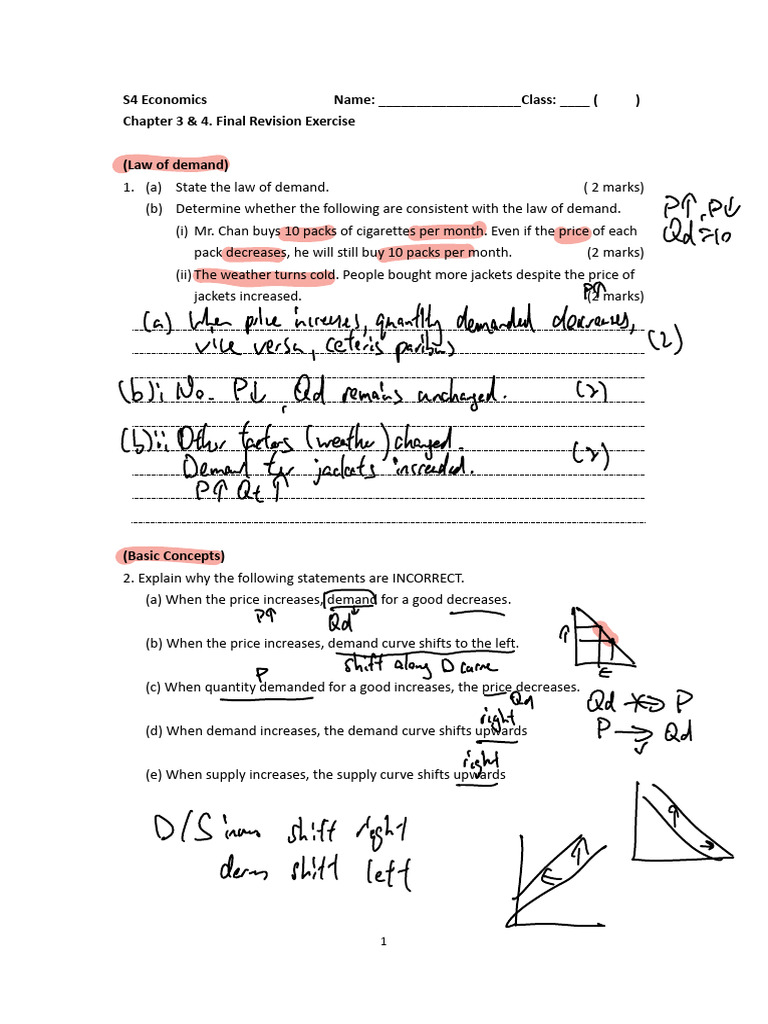 S4 Economics Name: ___________________Class: ____ ( )
Chapter 3 & 4. Final Revision Exercise
(Law of demand)
1. (a) State the law of demand. ( 2 marks)
(b) Determine whether the following are consistent with the law of demand.
P↑, P↓
(i) Mr. Chan buys 10 packs of cigarettes per month. Even if the price of each
Qd = 10
pack decreases, he will still buy 10 packs per month. (2 marks)
(ii) The weather turns cold. People bought more jackets despite the price of
P↑
jackets increased. (2 marks)
(a) When price increases, quantity demanded decreases,
vice versa, ceteris paribus (2)
(b)i No. P↓, Qd remains unchanged. (2)
(b)ii Other factors (weather) changed.
Demand for jackets increased. (2)
P↑ Qt ↑
(Basic Concepts)
2. Explain why the following statements are INCORRECT.
(a) When the price increases, demand for a good decreases.
P↑ Qd
(b) When the price increases, demand curve shifts to the left.
shift along D curve
P
(c) When quantity demanded for a good increases, the price decreases.
Qd
Qd P
P → Qd
right
(d) When demand increases, the demand curve shifts upwards
right
(e) When supply increases, the supply curve shifts upwards
D/S shift right
shift left
1